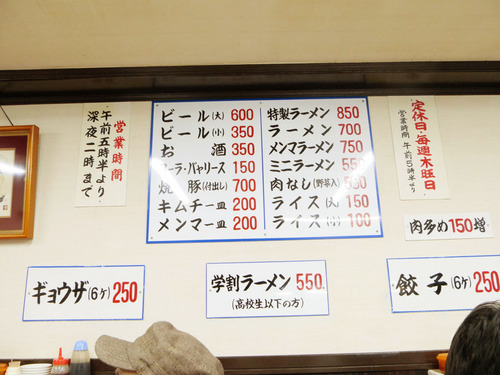 営業時間
午前五時半より
深夜二時まで
ビール(大) 600
ビール(小) 350
お酒 350
コーラ・バヤリース 150
焼豚(付出し) 700
キムチ一皿 200
メンマ一皿 200
特製ラーメン 850
ラーメン 700
メンマラーメン 750
ミニラーメン 550
肉なし(野菜入)
ライス(大) 150
ライス(小) 100
定休日・毎週木曜日
営業時間 午前5時より
肉多め150増
ギョウザ(6ヶ)250
学割ラーメン 550
(高校生以下の方)
餃子(6ヶ)250